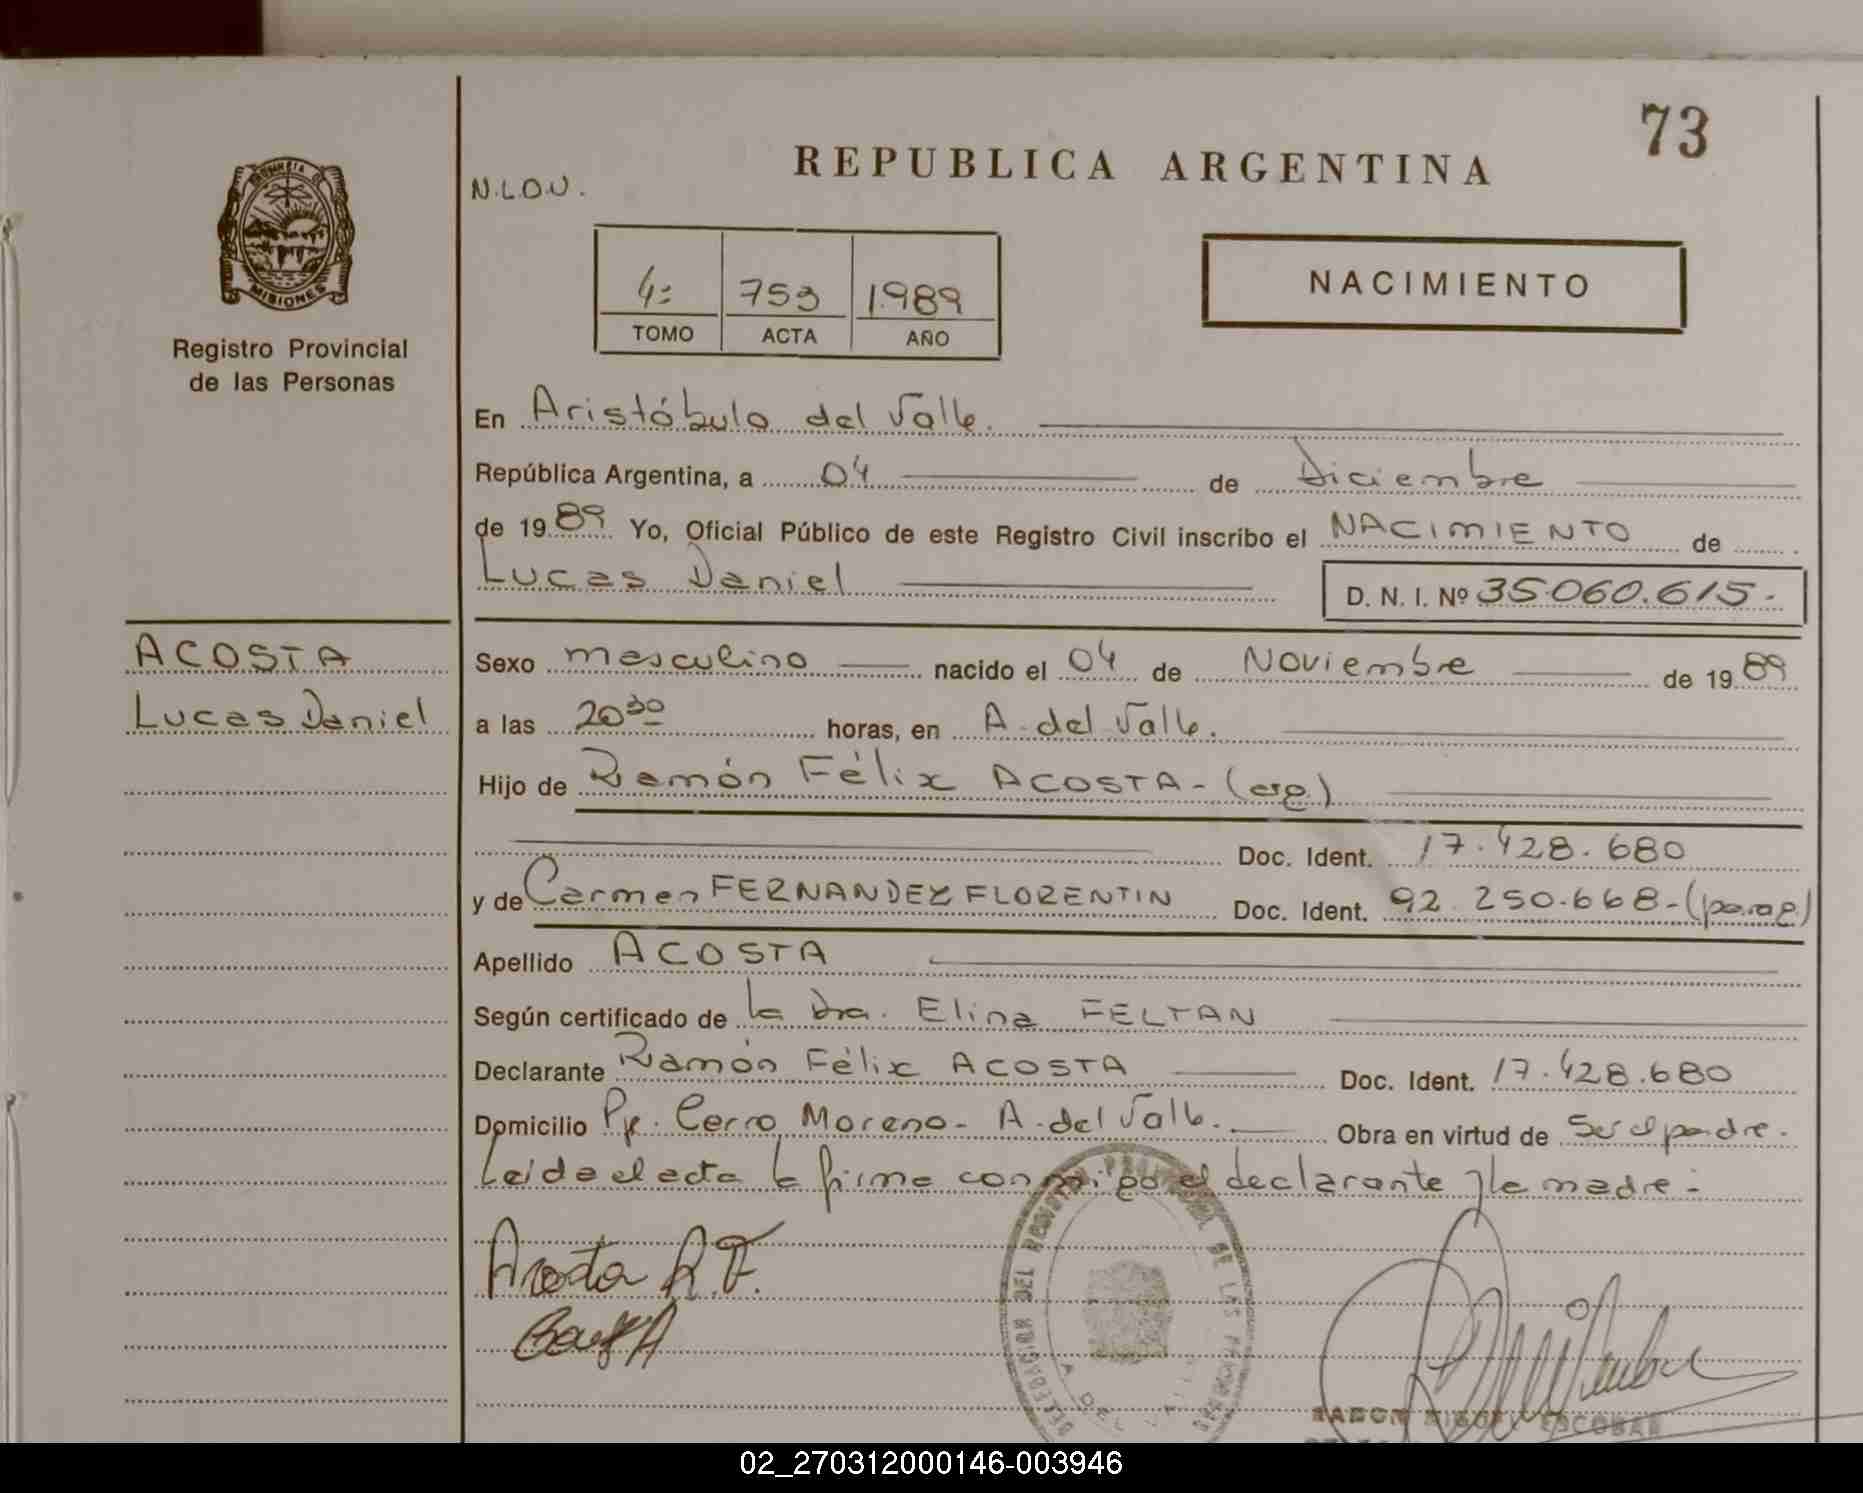 73
REPUBLICA ARGENTINA
N.L.O.U.
PROVINCIA DE
MISIONES
Registro Provincial
de las Personas
4: 753 1.989
TOMO ACTA AÑO
NACIMIENTO
En Aristóbulo del Valle.
República Argentina, a 04 de Diciembre
de 1989 Yo, Oficial Público de este Registro Civil inscribo el NACIMIENTO de
Lucas Daniel D. N. I. Nº 35.060.615.-
ACOSTA
Lucas Daniel
Sexo masculino nacido el 04 de Noviembre de 1989
a las 20 30 horas, en A. del Valle.
Hijo de Ramón Félix ACOSTA - (arg.)
Doc. Ident. 17.428.680
y de Carmen FERNANDEZ FLORENTIN Doc. Ident. 92.250.668 - (parag.)
Apellido ACOSTA
Según certificado de la Dra. Elina FELTAN
Declarante Ramón Félix ACOSTA Doc. Ident. 17.428.680
Domicilio Pje. Cerro Moreno - A. del Valle. Obra en virtud de ser el padre.
Leída el acta la firma conmigo el declarante y la madre -
Acosta R.F.
DELEGACION DEL REGISTRO PROVINCIAL DE LAS PERSONAS
A. DEL VALLE
RAMON MIGUEL ESCOBAR
02_270312000146-003946